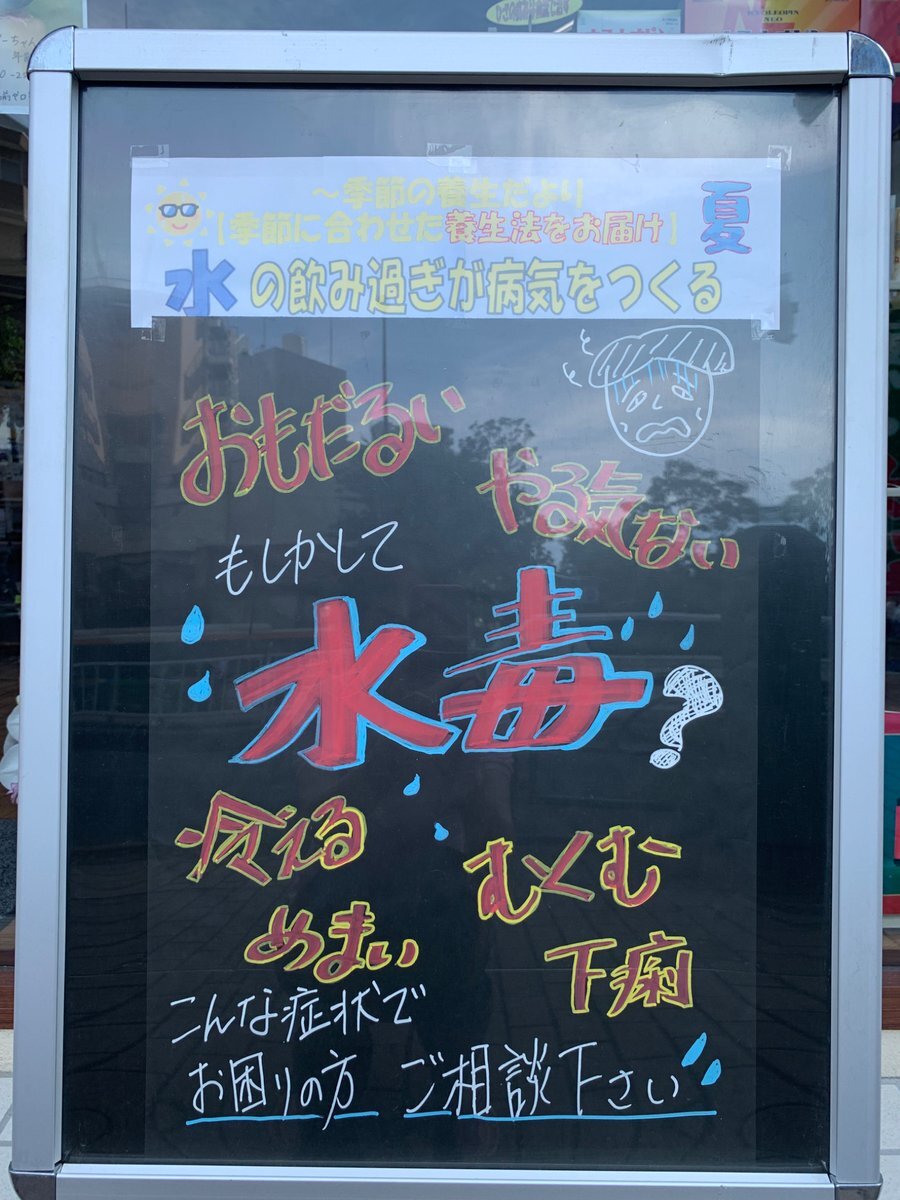 ～季節の養生だより
[季節に合わせた養生法をお届け]
夏
水の飲み過ぎが病気をつくる
おもだるい
やる気ない
もしかして
水毒?
冷える
むくむ
めまい
下痢
こんな症状で
お困りの方 ご相談下さい